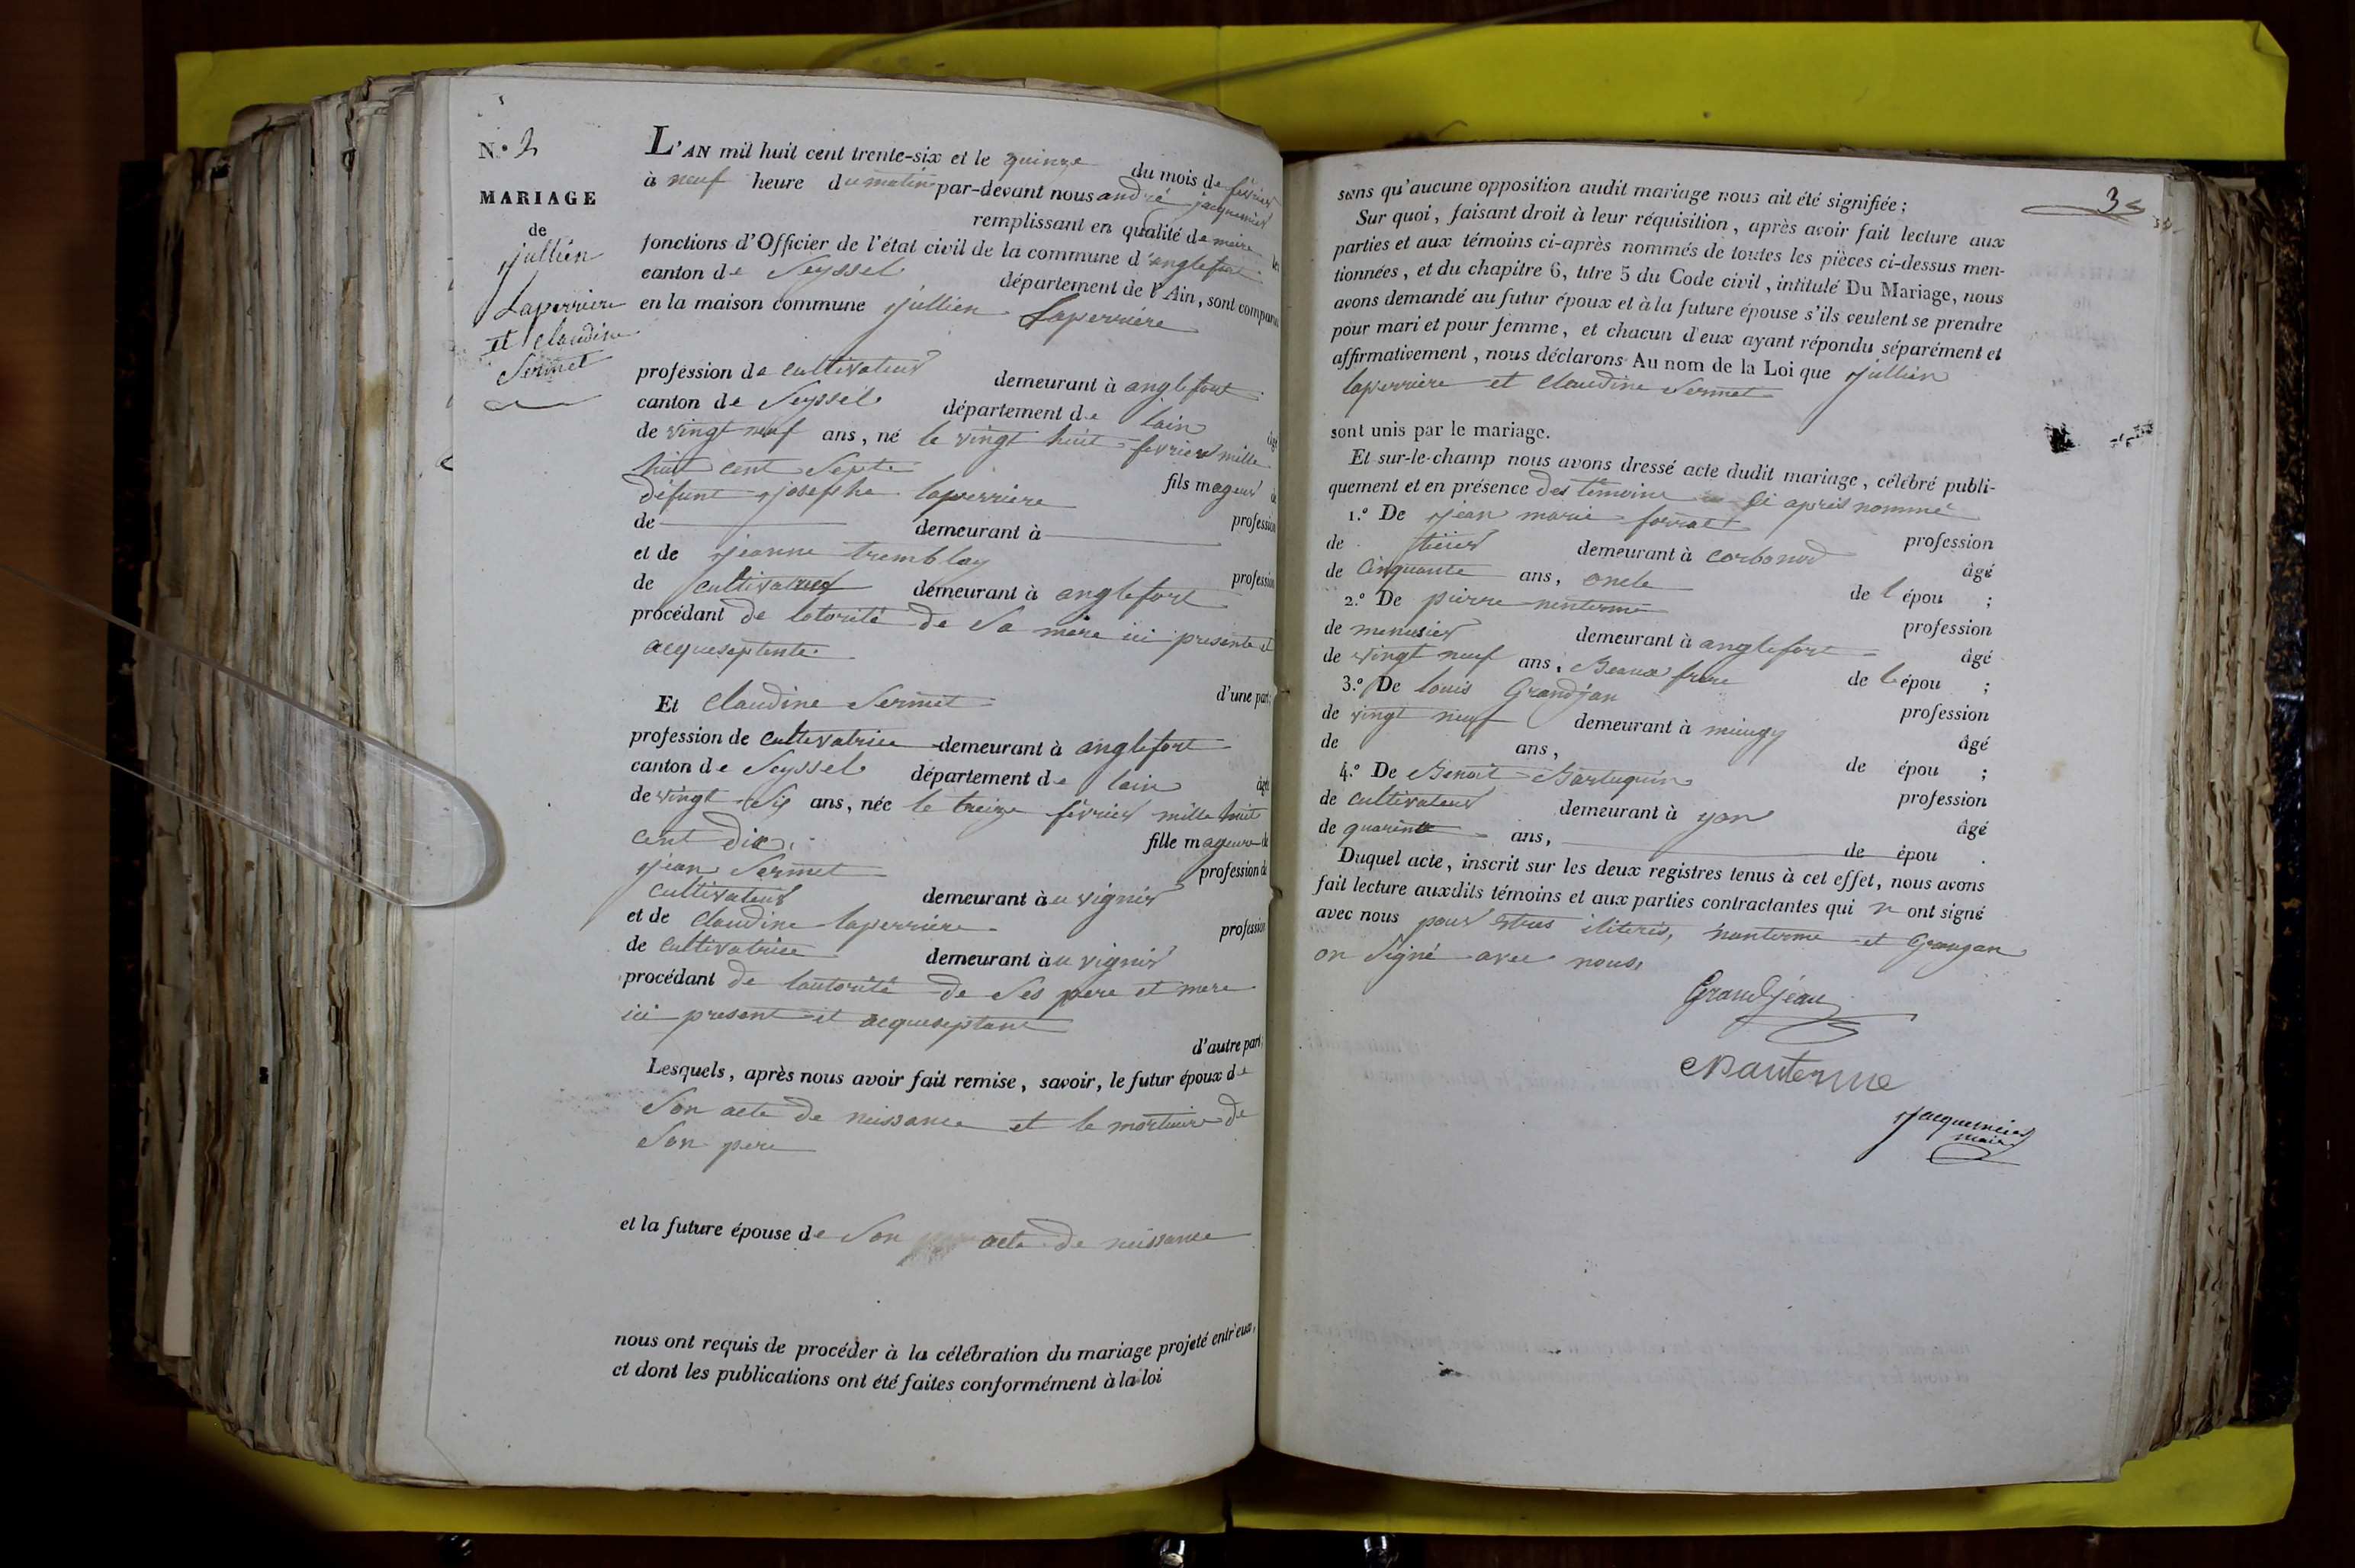 N.º 2
MARIAGE
de
jullien
Laperriere
et claudine
Sermet
L'AN mil huit cent trente-six et le quinze du mois de février
à neuf heure du matin par-devant nous andré jacquemier
remplissant en qualité de maire les
fonctions d'Officier de l'état civil de la commune d'anglefort
canton de Seyssel département de l'Ain, sont comparus
en la maison commune jullien Laperriere
profession de cultivateur demeurant à anglefort
canton de Seyssel département de lain âgé
de vingt neuf ans, né le vingt huit fevrier mille
huit cent Septe fils mageur de
défunt josephe laperriere profession
de demeurant à
et de jeanne tremblay profession
de cultivatrice demeurant à anglefort
procédant de lotorité de Sa mère ici presente et
acqueseptente
d'une part;
Et Claudine Sermet
profession de cultivatrice demeurant à anglefort
canton de Seyssel département de lain âgée
de vingt Six ans, née le treize février mille huit
cent dix fille mageure de
jean Sermet profession de
cultivateur demeurant au vignier
et de claudine laperriere profession
de cultivatrice demeurant au vignier
procédant de lautorité de Ses pere et mere
ici present et acqueseptant
d'autre part;
Lesquels, après nous avoir fait remise, savoir, le futur époux de
Son acte de naissance et le mortuaire de
Son pere
et la future épouse de Son acte de naissance
nous ont requis de procéder à la célébration du mariage projeté entr'eux,
et dont les publications ont été faites conformément à la loi
35
sans qu'aucune opposition audit mariage nous ait été signifiée;
Sur quoi, faisant droit à leur réquisition, après avoir fait lecture aux
parties et aux témoins ci-après nommés de toutes les pièces ci-dessus men-
tionnées, et du chapitre 6, titre 5 du Code civil, intitulé Du Mariage, nous
avons demandé au futur époux et à la future épouse s'ils veulent se prendre
pour mari et pour femme, et chacun d'eux ayant répondu séparément et
affirmativement, nous déclarons Au nom de la Loi que jullien
laperriere et claudine Sermet
sont unis par le mariage.
Et sur-le-champ nous avons dressé acte dudit mariage, célébré publi-
quement et en présence des témoins ci après nommé
1.º De jean marie forrat profession
de demeurant à corbonod âgé
de Cinquante ans, oncle de l'épou ;
2.º De pierre nenterme profession
de menusier demeurant à anglefort âgé
de vingt neuf ans, Beaux frere de l'épou ;
3.º De louis Grandjan profession
de vingt neuf demeurant à âgé
de ans, de épou ;
4.º De Benoit profession
de cultivateur demeurant à yon âgé
de quarente ans, de épou .
Duquel acte, inscrit sur les deux registres tenus à cet effet, nous avons
fait lecture auxdits témoins et aux parties contractantes qui n ont signé
avec nous pour estres iliterés, nanterme et Grangan
on Signé avec nous
Grandjean
Nanterme
Jacquemier
maire